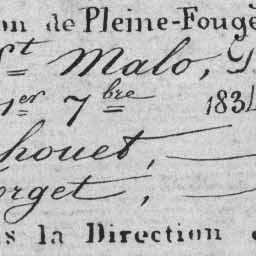 on de Pleine-Foug
St Malo,
1er 7bre 183
houet,
rget,
s la Direction